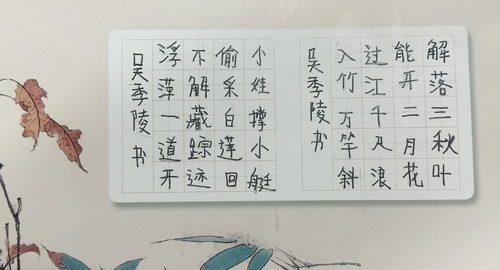 解落三秋叶
能开二月花
过江千尺浪
入竹万竿斜
吴季陵书
小娃撑小艇
偷采白莲回
不解藏踪迹
浮萍一道开
吴季陵书